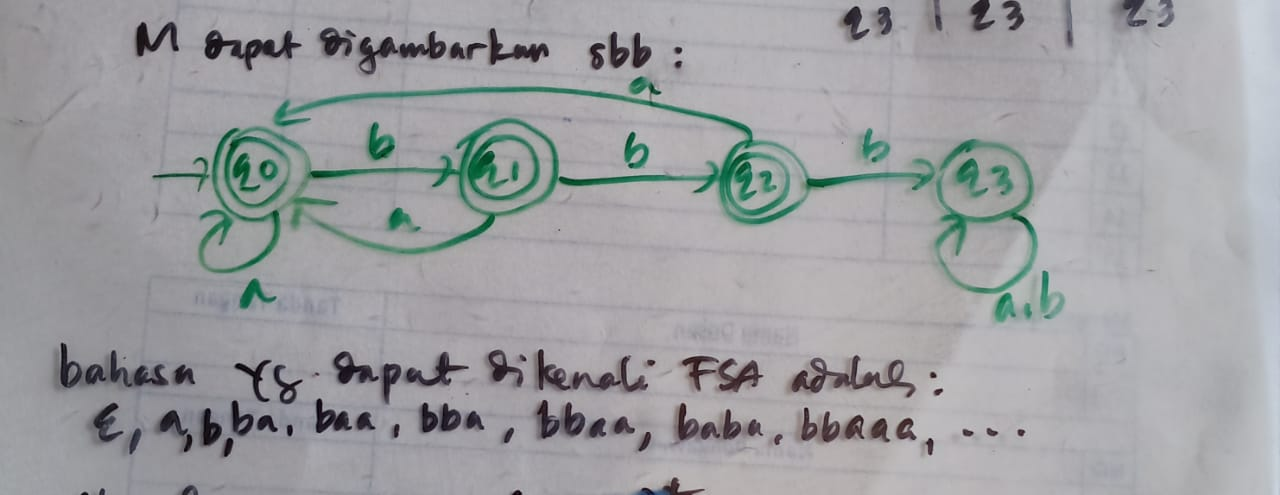 q3 | q3 | q3
M dapat digambarkan sbb :
a
b b b
q0 q1 q2 q3
a
a a,b
bahasa yg dapat dikenali FSA adalah :
ε, a, b, ba, baa, bba, bbaa, baba, bbaaa, ...